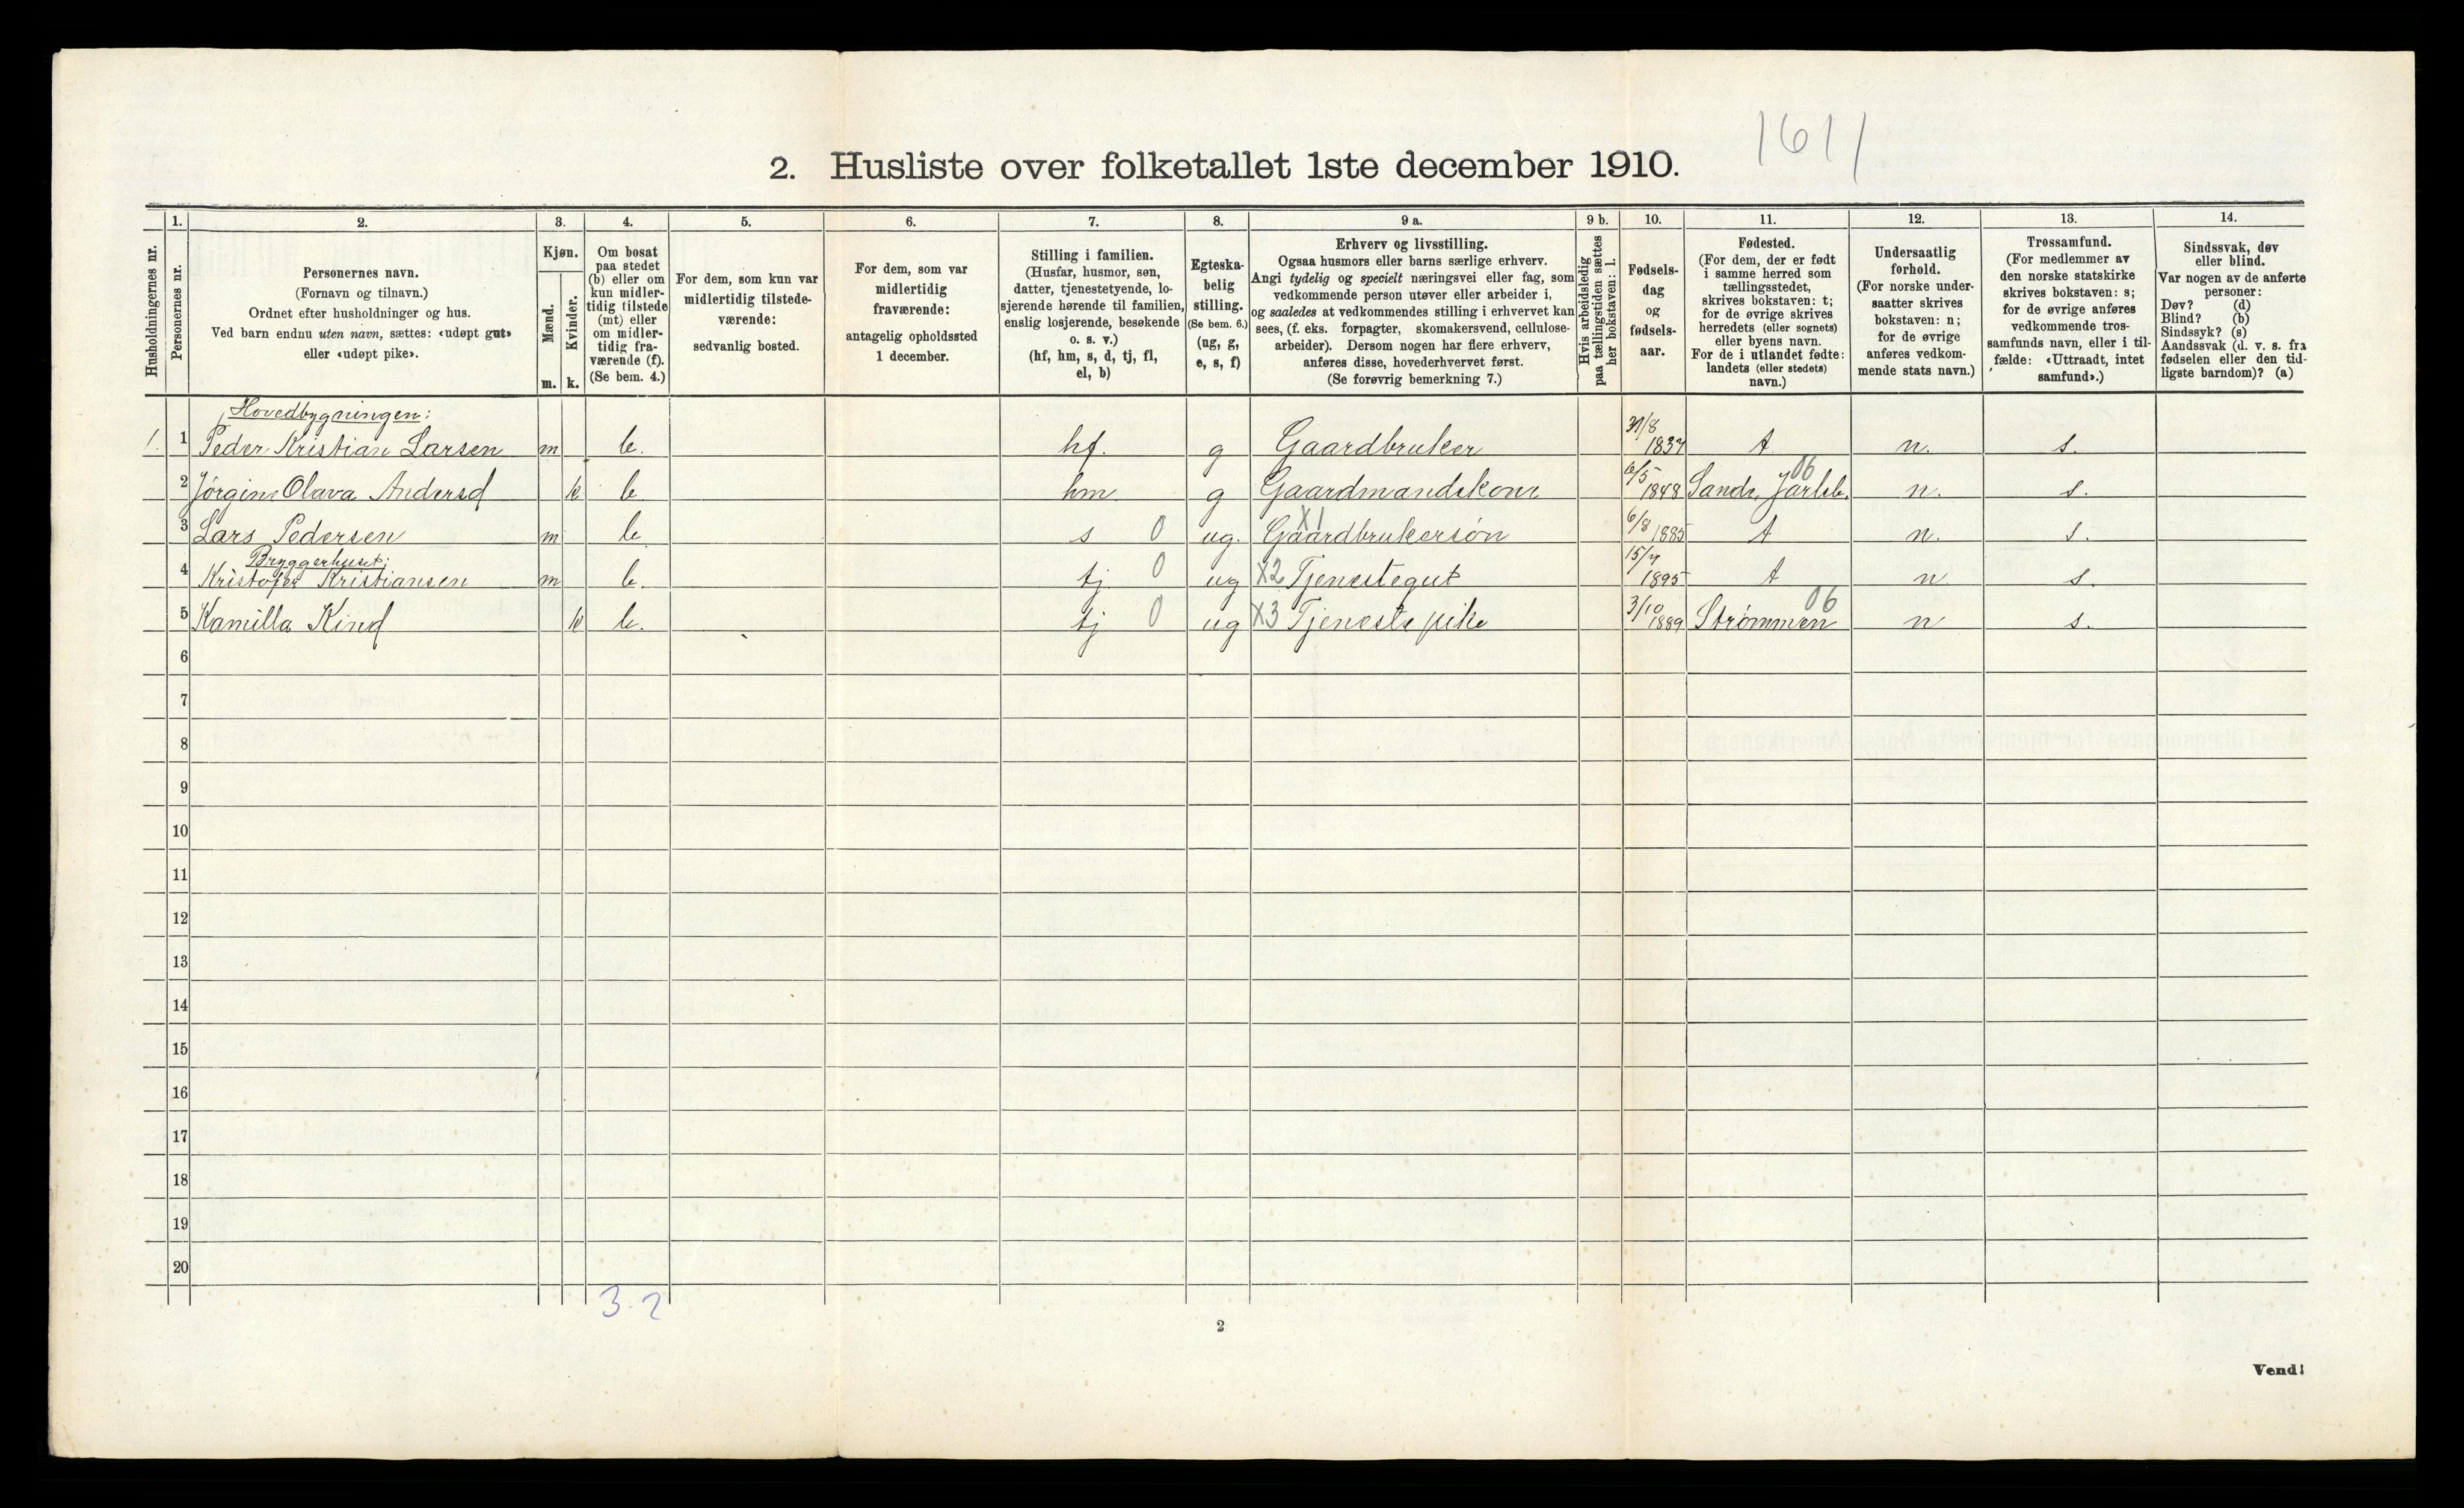 1611
2. Husliste over folketallet 1ste december 1910.
Husholdningernes nr.
1.
Personernes nr.
2.
Personernes navn.
(Fornavn og tilnavn.)
Ordnet efter husholdninger og hus.
Ved barn endnu uten navn, sættes: «udøpt gut»
eller «udøpt pike».
3.
Kjøn.
Mænd.
Kvinder.
m.
k.
4.
Om bosat
paa stedet
(b) eller om
kun midler-
tidig tilstede
(mt) eller
om midler-
tidig fra-
værende (f).
(Se bem. 4.)
5.
For dem, som kun var
midlertidig tilstede-
værende:
sedvanlig bosted.
6.
For dem, som var
midlertidig
fraværende:
antagelig opholdssted
1 december.
7.
Stilling i familien.
(Husfar, husmor, søn,
datter, tjenestetyende, lo-
sjerende hørende til familien,
enslig losjerende, besøkende
o. s. v.)
(hf, hm, s, d, tj, fl,
el, b)
8.
Egteska-
belig
stilling.
(Se bem. 6.)
(ug, g,
e, s, f)
9 a.
Erhverv og livsstilling.
Ogsaa husmors eller barns særlige erhverv.
Angi tydelig og specielt næringsvei eller fag, som
vedkommende person utøver eller arbeider i,
og saaledes at vedkommendes stilling i erhvervet kan
sees, (f. eks. forpagter, skomakersvend, cellulose-
arbeider). Dersom nogen har flere erhverv,
anføres disse, hovederhvervet først.
(Se forøvrig bemerkning 7.)
9 b.
Hvis arbeidsledig
paa tællingstiden sættes
her bokstaven: l.
10.
Fødsels-
dag
og
fødsels-
aar.
11.
Fødested.
(For dem, der er født
i samme herred som
tællingsstedet,
skrives bokstaven: t;
for de øvrige skrives
herredets (eller sognets)
eller byens navn.
For de i utlandet fødte:
landets (eller stedets)
navn.)
12.
Undersaatlig
forhold.
(For norske under-
saatter skrives
bokstaven: n;
for de øvrige
anføres vedkom-
mende stats navn.)
13.
Trossamfund.
(For medlemmer av
den norske statskirke
skrives bokstaven: s;
for de øvrige anføres
vedkommende tros-
samfunds navn, eller i til-
fælde: «Uttraadt, intet
samfund».)
14.
Sindssvak, døv
eller blind.
Var nogen av de anførte
personer:
Døv? (d)
Blind? (b)
Sindssyk? (s)
Aandssvak (d. v. s. fra
fødselen eller den tid-
ligste barndom)? (a)
Hovedbygningen:
1. 1 Peder Kristian Larsen m b. hf. g Gaardbruker 31/8 1837 t n. s.
2 Jørgine Olava Andersd k b hm g Gaardmandskone 6/5 1848 Sande, Jarlsb. 06 n. s.
3 Lars Pedersen m b s 0 ug. X1 Gaardbrukersøn 6/8 1885 t n. s.
Bryggerhuset:
4 Kristofer Kristiansen m b. tj 0 ug X2 Tjenestegut 15/7 1895 t n s.
5 Kamilla Kind k b. tj 0 ug X3 Tjeneste pike 3/10 1889 Strømmen 06 n s.
6
7
8
9
10
11
12
13
14
15
16
17
18
19
20
3. 2
2
Vend!